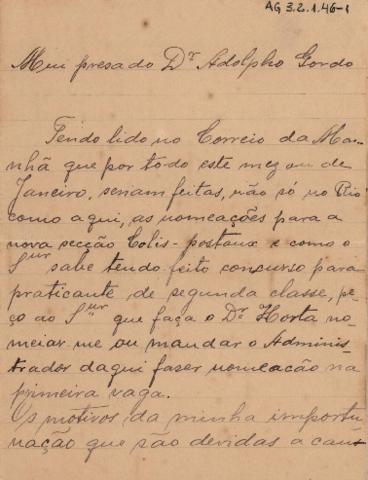 AG 3.2.1.46-1
Meu presado Dr Adolpho Gordo
Tendo lido no Correio da Ma-
nhã que por todo este mez ou de
Janeiro, seriam feitas, não só no Rio
como aqui, as nomeações para a
nova secção Colis-postaux e como o
Snr sabe tendo feito concurso para
praticante de segunda classe, pe-
ço ao Snr que faça o Dr Horta no-
meiar me ou mandar o Adminis-
trador daqui fazer nomeação na
primeira vaga.
Os motivos da minha importu-
nação que são devidas a cau-